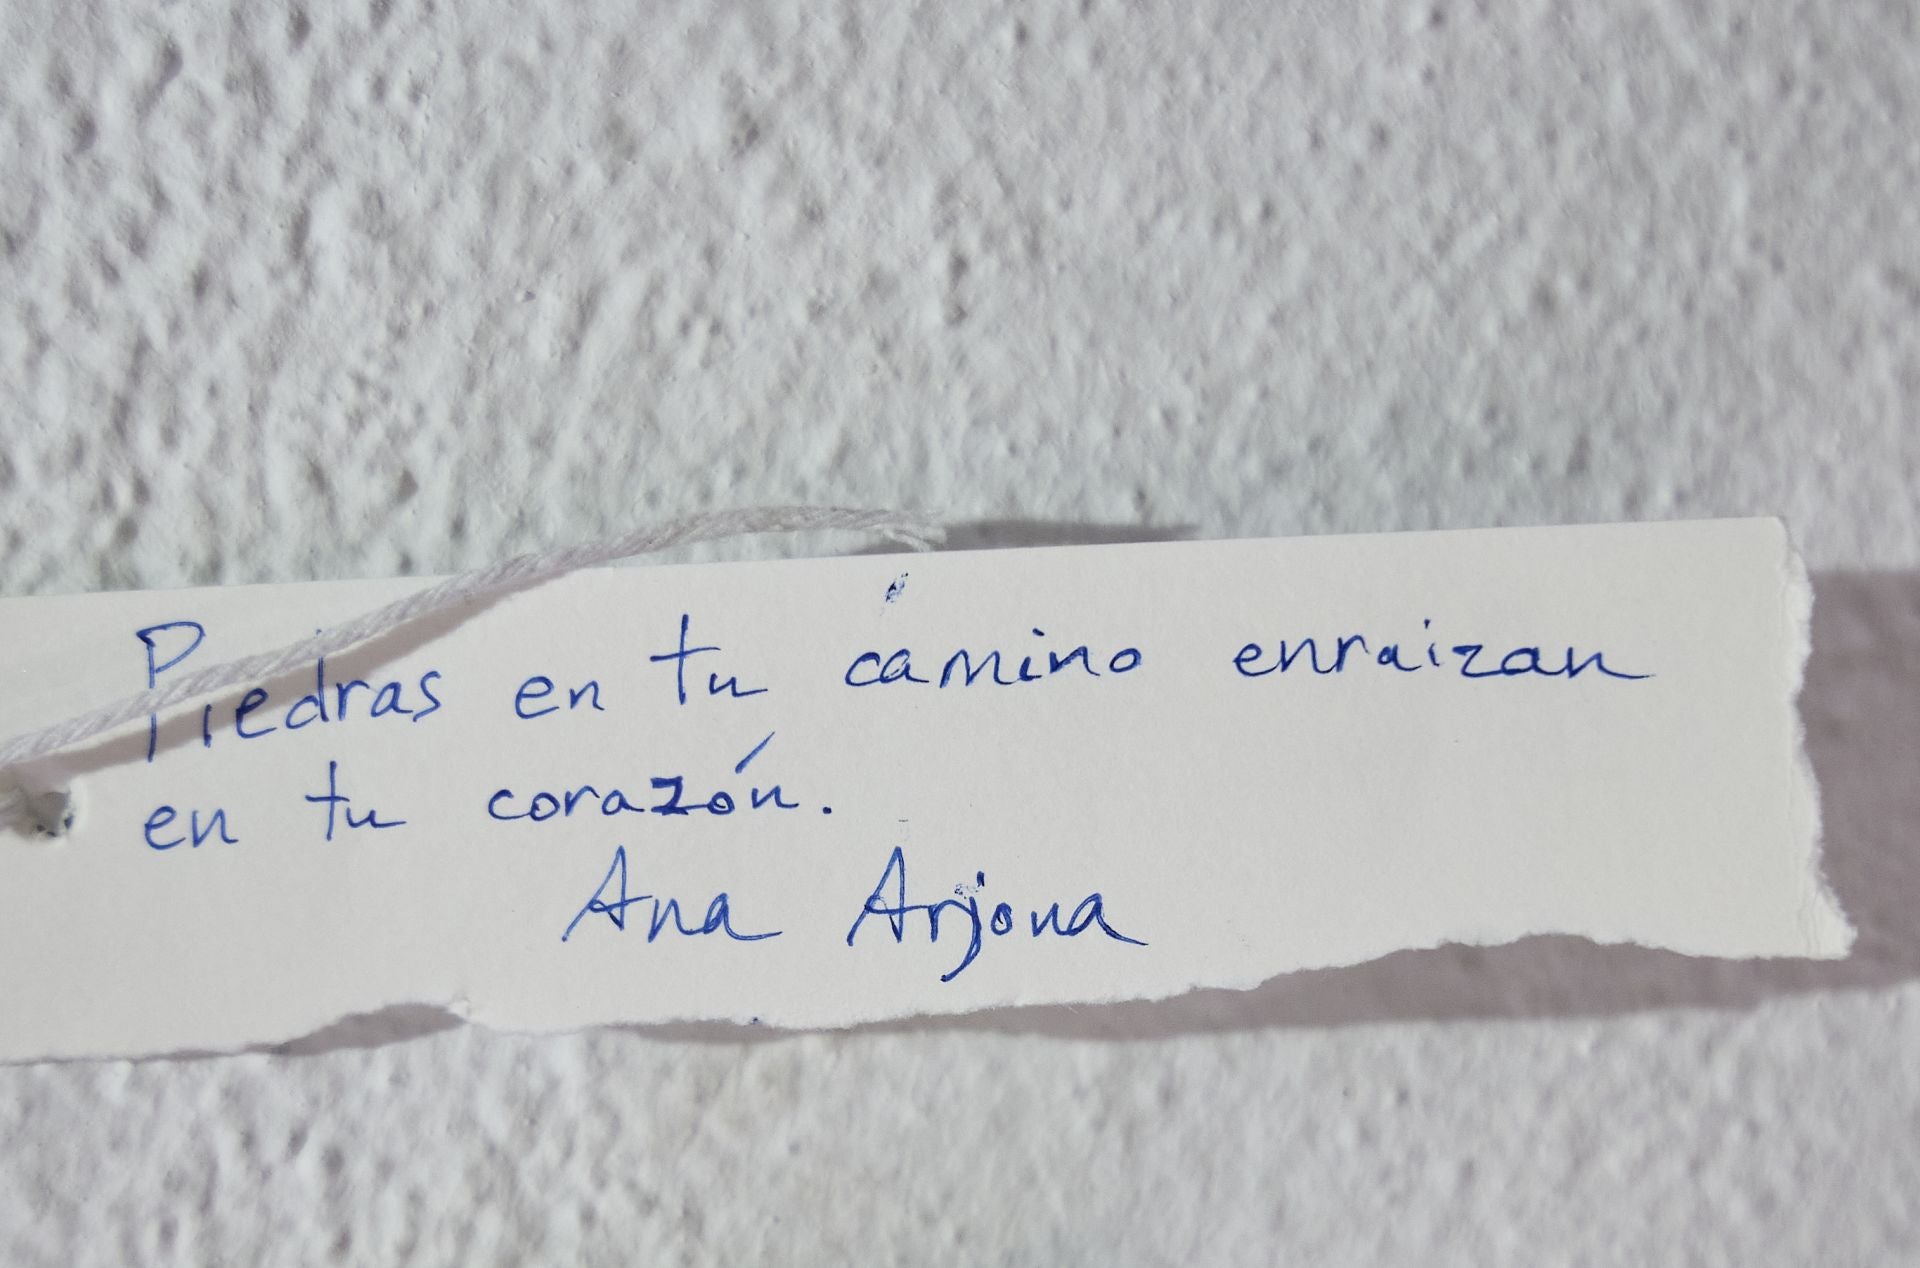 Piedras en tu camino enraizan
en tu corazón.
Ana Arjona